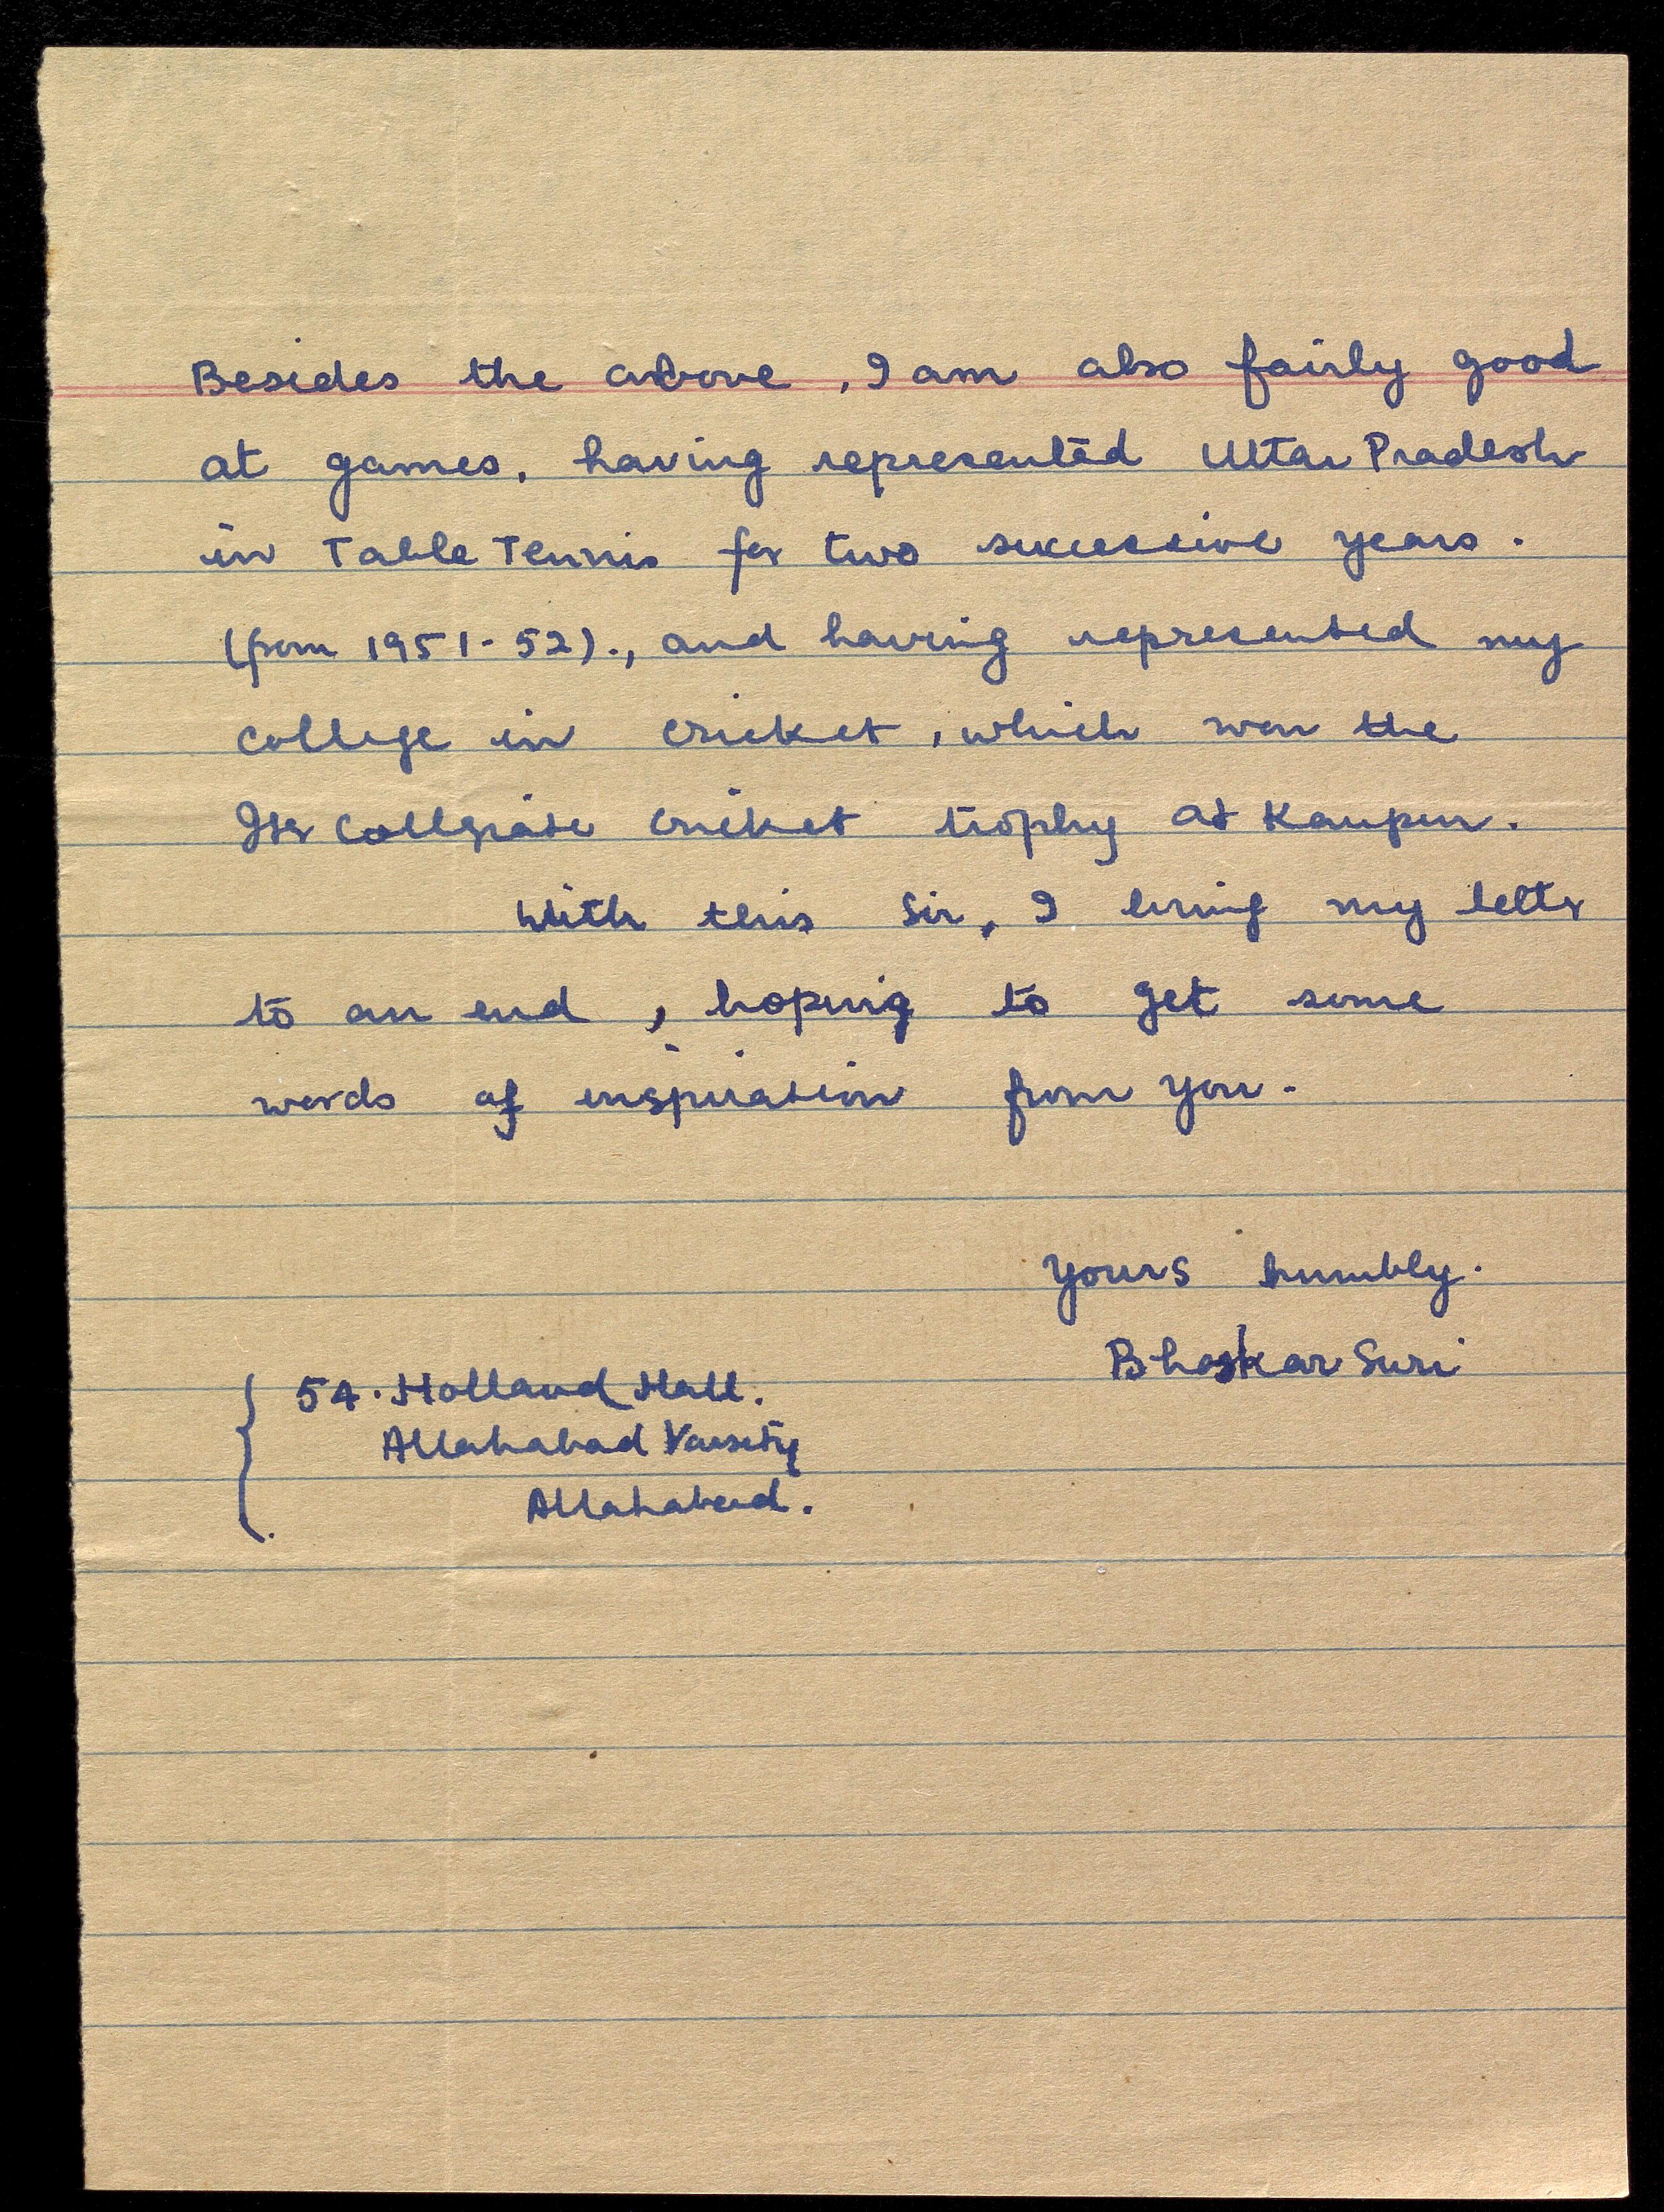 Besides the above, I am also fairly good
at games, having represented Uttar Pradesh
in Table Tennis for two successive years.
(from 1951-52)., and having represented my
college in cricket, which won the
Itr Collgiate cricket trophy at Kanpur.
With this Sir, I bring my letter
to an end, hoping to get some
words of inspiration from you.
Yours humbly.
Bhaskar Suri
54. Holland Hall.
Allahabad Varsity
Allahabad.